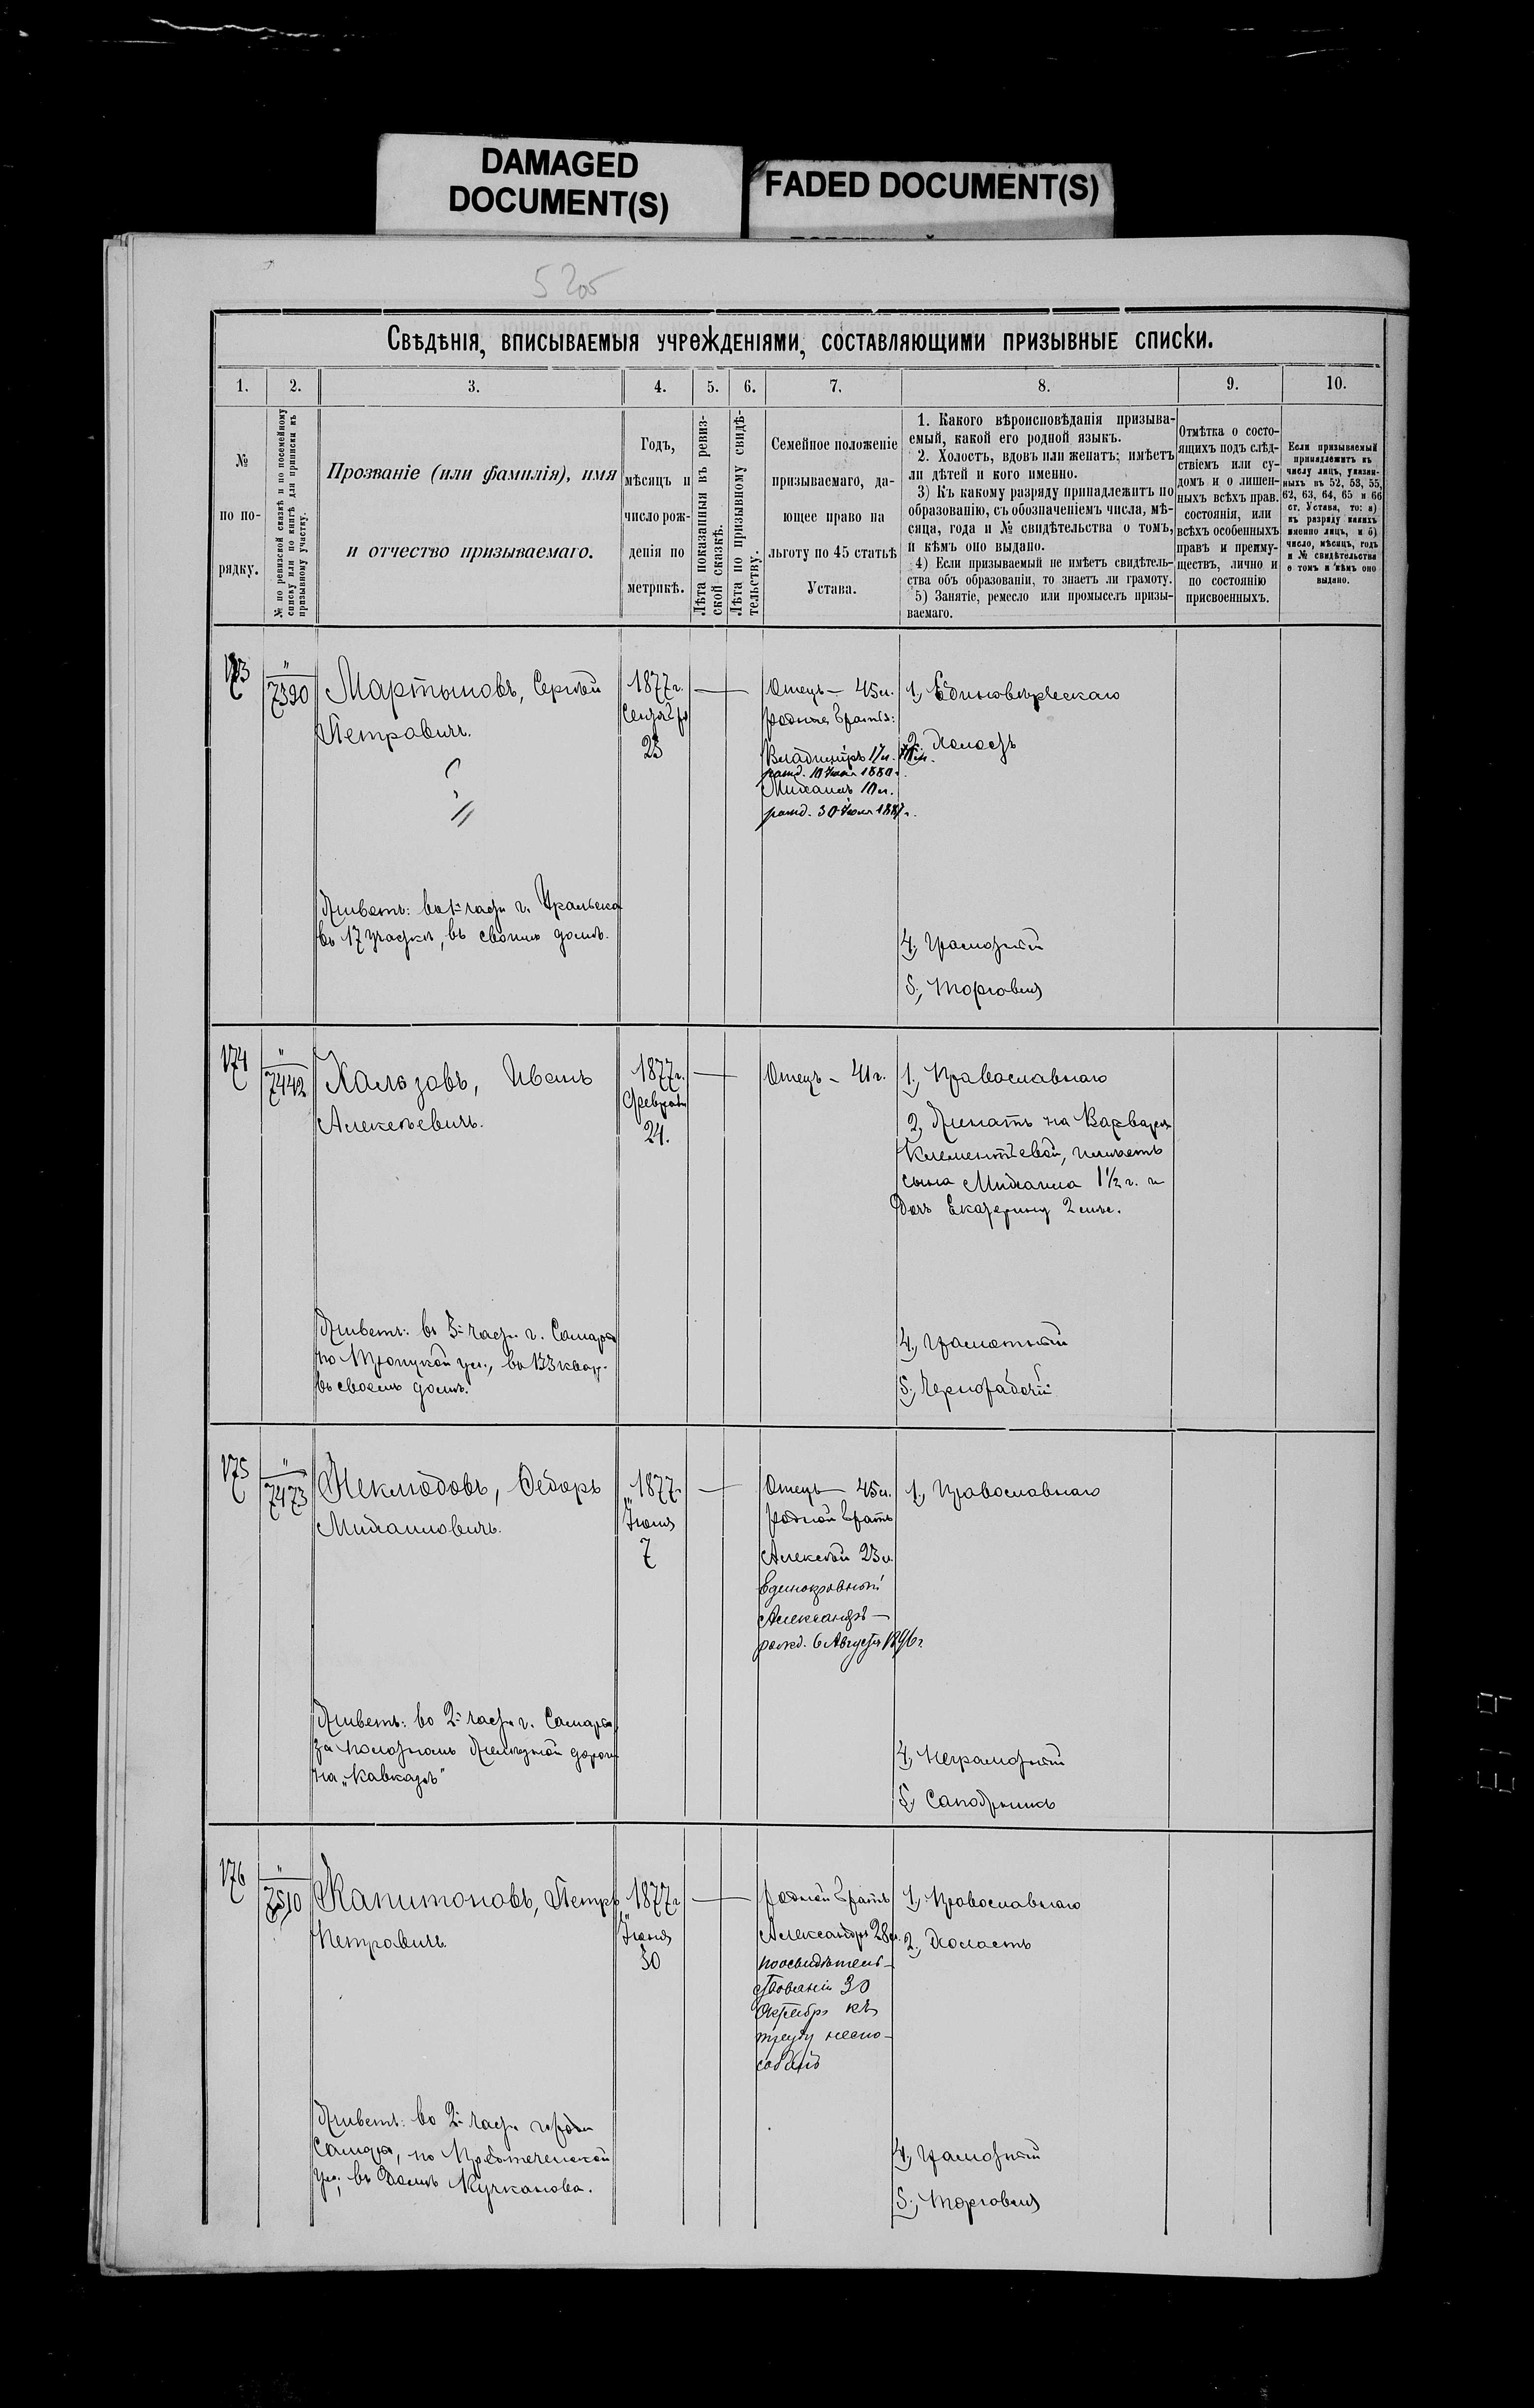 DAMAGED
DOCUMENT(S)
FADED DOCUMENT(S)
5205
Свѣдѣнія, вписываемыя учрежденіями, составляющими призывные списки.
1.
2.
3.
4.
5.
6.
7.
8.
9.
10.
№
по по-
рядку.
№ по ревизской сказкѣ и по посемейному
списку или по книгѣ для приписки къ
призывному участку.
Прозваніе (или фамилія), имя
и отчество призываемаго.
Годъ,
мѣсяцъ и
число рож-
денія по
метрикѣ.
Лѣта показанныя въ ревиз-
ской сказкѣ.
Лѣта по призывному свидѣ-
тельству.
Семейное положеніе
призываемаго, да-
ющее право на
льготу по 45 статьѣ
Устава.
1. Какого вѣроисповѣданія призыва-
емый, какой его родной языкъ.
2. Холостъ, вдовъ или женатъ; имѣетъ
ли дѣтей и кого именно.
3) Къ какому разряду принадлежитъ по
образованію, съ обозначеніемъ числа, мѣ-
сяца, года и № свидѣтельства о томъ,
и кѣмъ оно выдано.
4) Если призываемый не имѣетъ свидѣтель-
ства объ образованіи, то знаетъ ли грамоту.
5) Занятіе, ремесло или промыселъ призы-
ваемаго.
Отмѣтка о состо-
ящихъ подъ слѣд-
ствіемъ или су-
домъ и о лишен-
ныхъ всѣхъ прав.
состоянія, или
всѣхъ особенныхъ
правъ и преиму-
ществъ, лично и
по состоянію
присвоенныхъ.
Если призываемый
принадлежитъ къ
числу лицъ, указан-
ныхъ въ 52, 53, 55,
62, 63, 64, 65 и 66
ст. Устава, то: а)
къ разряду какихъ
именно лицъ, и б)
число, мѣсяцъ, годъ
и № свидѣтельства
о томъ и кѣмъ оно
выдано.
173
"
7390
Мартыновъ, Сергѣй
Петровичъ.
1877 г.
Сентября
23
Отецъ — 45 л.
родные братья:
Владиміръ 17 л.
рожд. 10 Іюля 1880 г.
Михаилъ 10 л.
рожд. 30 Іюля 1887 г.
1, Единовѣрческаго
2, Холостъ
Живетъ: во 1й части г. Уральска
въ 17 участкѣ, въ своемъ домѣ.
4, Грамотный
5, Торговля
174
"
7442
Хальзовъ, Иванъ
Алексѣевичъ.
1877 г.
Февраля
24.
Отецъ — 41 г.
1, Православнаго
2, Женатъ на Варварѣ
Клементьевой, имѣетъ
сына Михаила 1½ г. и
дочь Екатерину 2 мѣс.
Живетъ: въ 3й части г. Самары
по Троицкой ул., во 133 кварт.
въ своемъ домѣ.
4, Грамотный
5, Чернорабочій
175
"
7473
Неклюдовъ, Ѳедоръ
Михаиловичъ.
1877 г.
Іюня
7
Отецъ — 45 л.
родной братъ
Алексѣй 23 л.
Единокровный
Александръ —
рожд. 6 Августа 1896 г
1, Православнаго
Живетъ: во 2й части г. Самары
за полотномъ Желѣзной дороги
на „Кавказѣ"
4, Неграмотный
5, Сапожникъ
176
"
7510
Капитоновъ, Петръ
Петровичъ.
1877 г
Іюня
30
родной братъ
Александръ 28 л.
по освидѣтель-
ствованіи 30
Октября къ
труду неспо-
собенъ
1, Православнаго
2, Холостъ
Живетъ: во 2й части города
Самары, по Предтеченской
ул., въ домѣ Кучканова.
4, Грамотный
5, Торговля